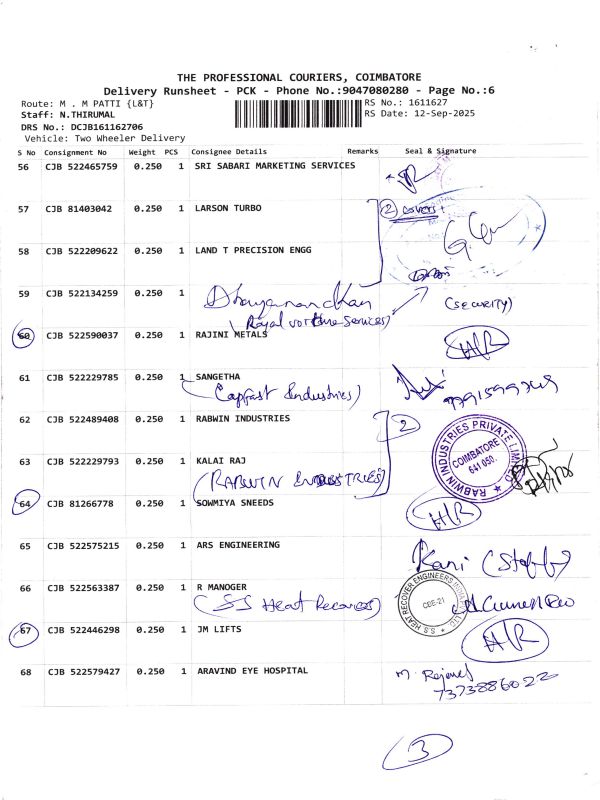 THE PROFESSIONAL COURIERS, COIMBATORE
Delivery Runsheet - PCK - Phone No.:9047080280 - Page No.:6
Route: M . M PATTI {L&T}
RS No.: 1611627
Staff: N.THIRUMAL
RS Date: 12-Sep-2025
DRS No.: DCJB161162706
Vehicle: Two Wheeler Delivery
S No Consignment No Weight PCS Consignee Details Remarks Seal & Signature
56 CJB 522465759 0.250 1 SRI SABARI MARKETING SERVICES
57 CJB 81403042 0.250 1 LARSON TURBO 2 covers
58 CJB 522209622 0.250 1 LAND T PRECISION ENGG
59 CJB 522134259 0.250 1 (Security)
60 CJB 522590037 0.250 1 RAJINI METALS H/R
61 CJB 522229785 0.250 1 SANGETHA
(Capfast Industries)
62 CJB 522489408 0.250 1 RABWIN INDUSTRIES 2
RABWIN INDUSTRIES PRIVATE LIMITED
COIMBATORE
641 050.
63 CJB 522229793 0.250 1 KALAI RAJ
(RABWIN INDUSTRIES)
64 CJB 81266778 0.250 1 SOWMIYA SNEEDS H/R
65 CJB 522575215 0.250 1 ARS ENGINEERING Kani (Staff)
66 CJB 522563387 0.250 1 R MANOGER
(SS Heat Recovers)
S.S. HEAT RECOVER ENGINEERS LTD.
CBE-21
67 CJB 522446298 0.250 1 JM LIFTS H/R
68 CJB 522579427 0.250 1 ARAVIND EYE HOSPITAL M.
7373886022
3